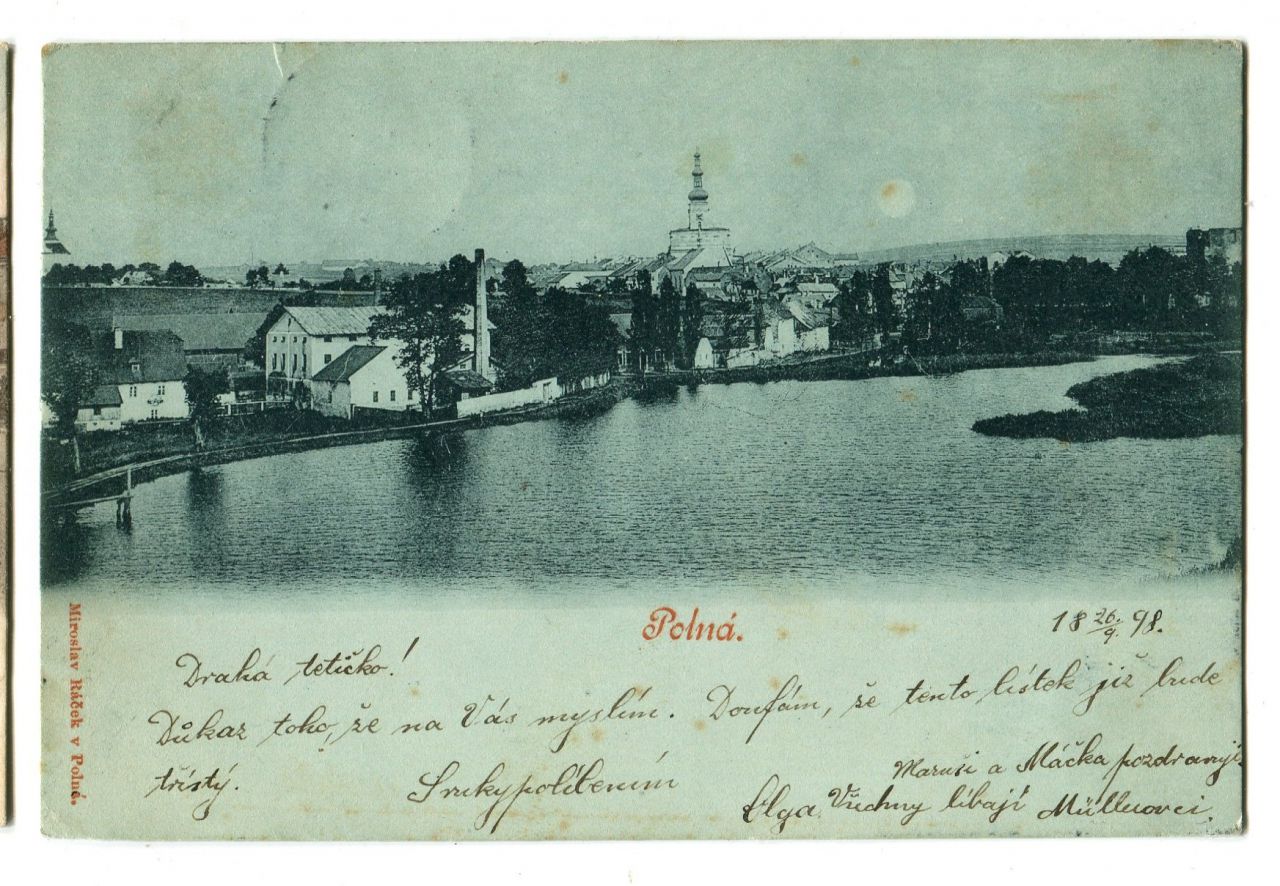 Polná.
18 26./9. 98.
Miroslav Ráček v Polné.
Drahá tetičko!
Důkaz toho, že na Vás myslím. Doufám, že tento lístek již bude
třístý. S rukypolíbením
Maruši a Máčka pozdravují.
Olga. Všechny líbají Müllerovci.